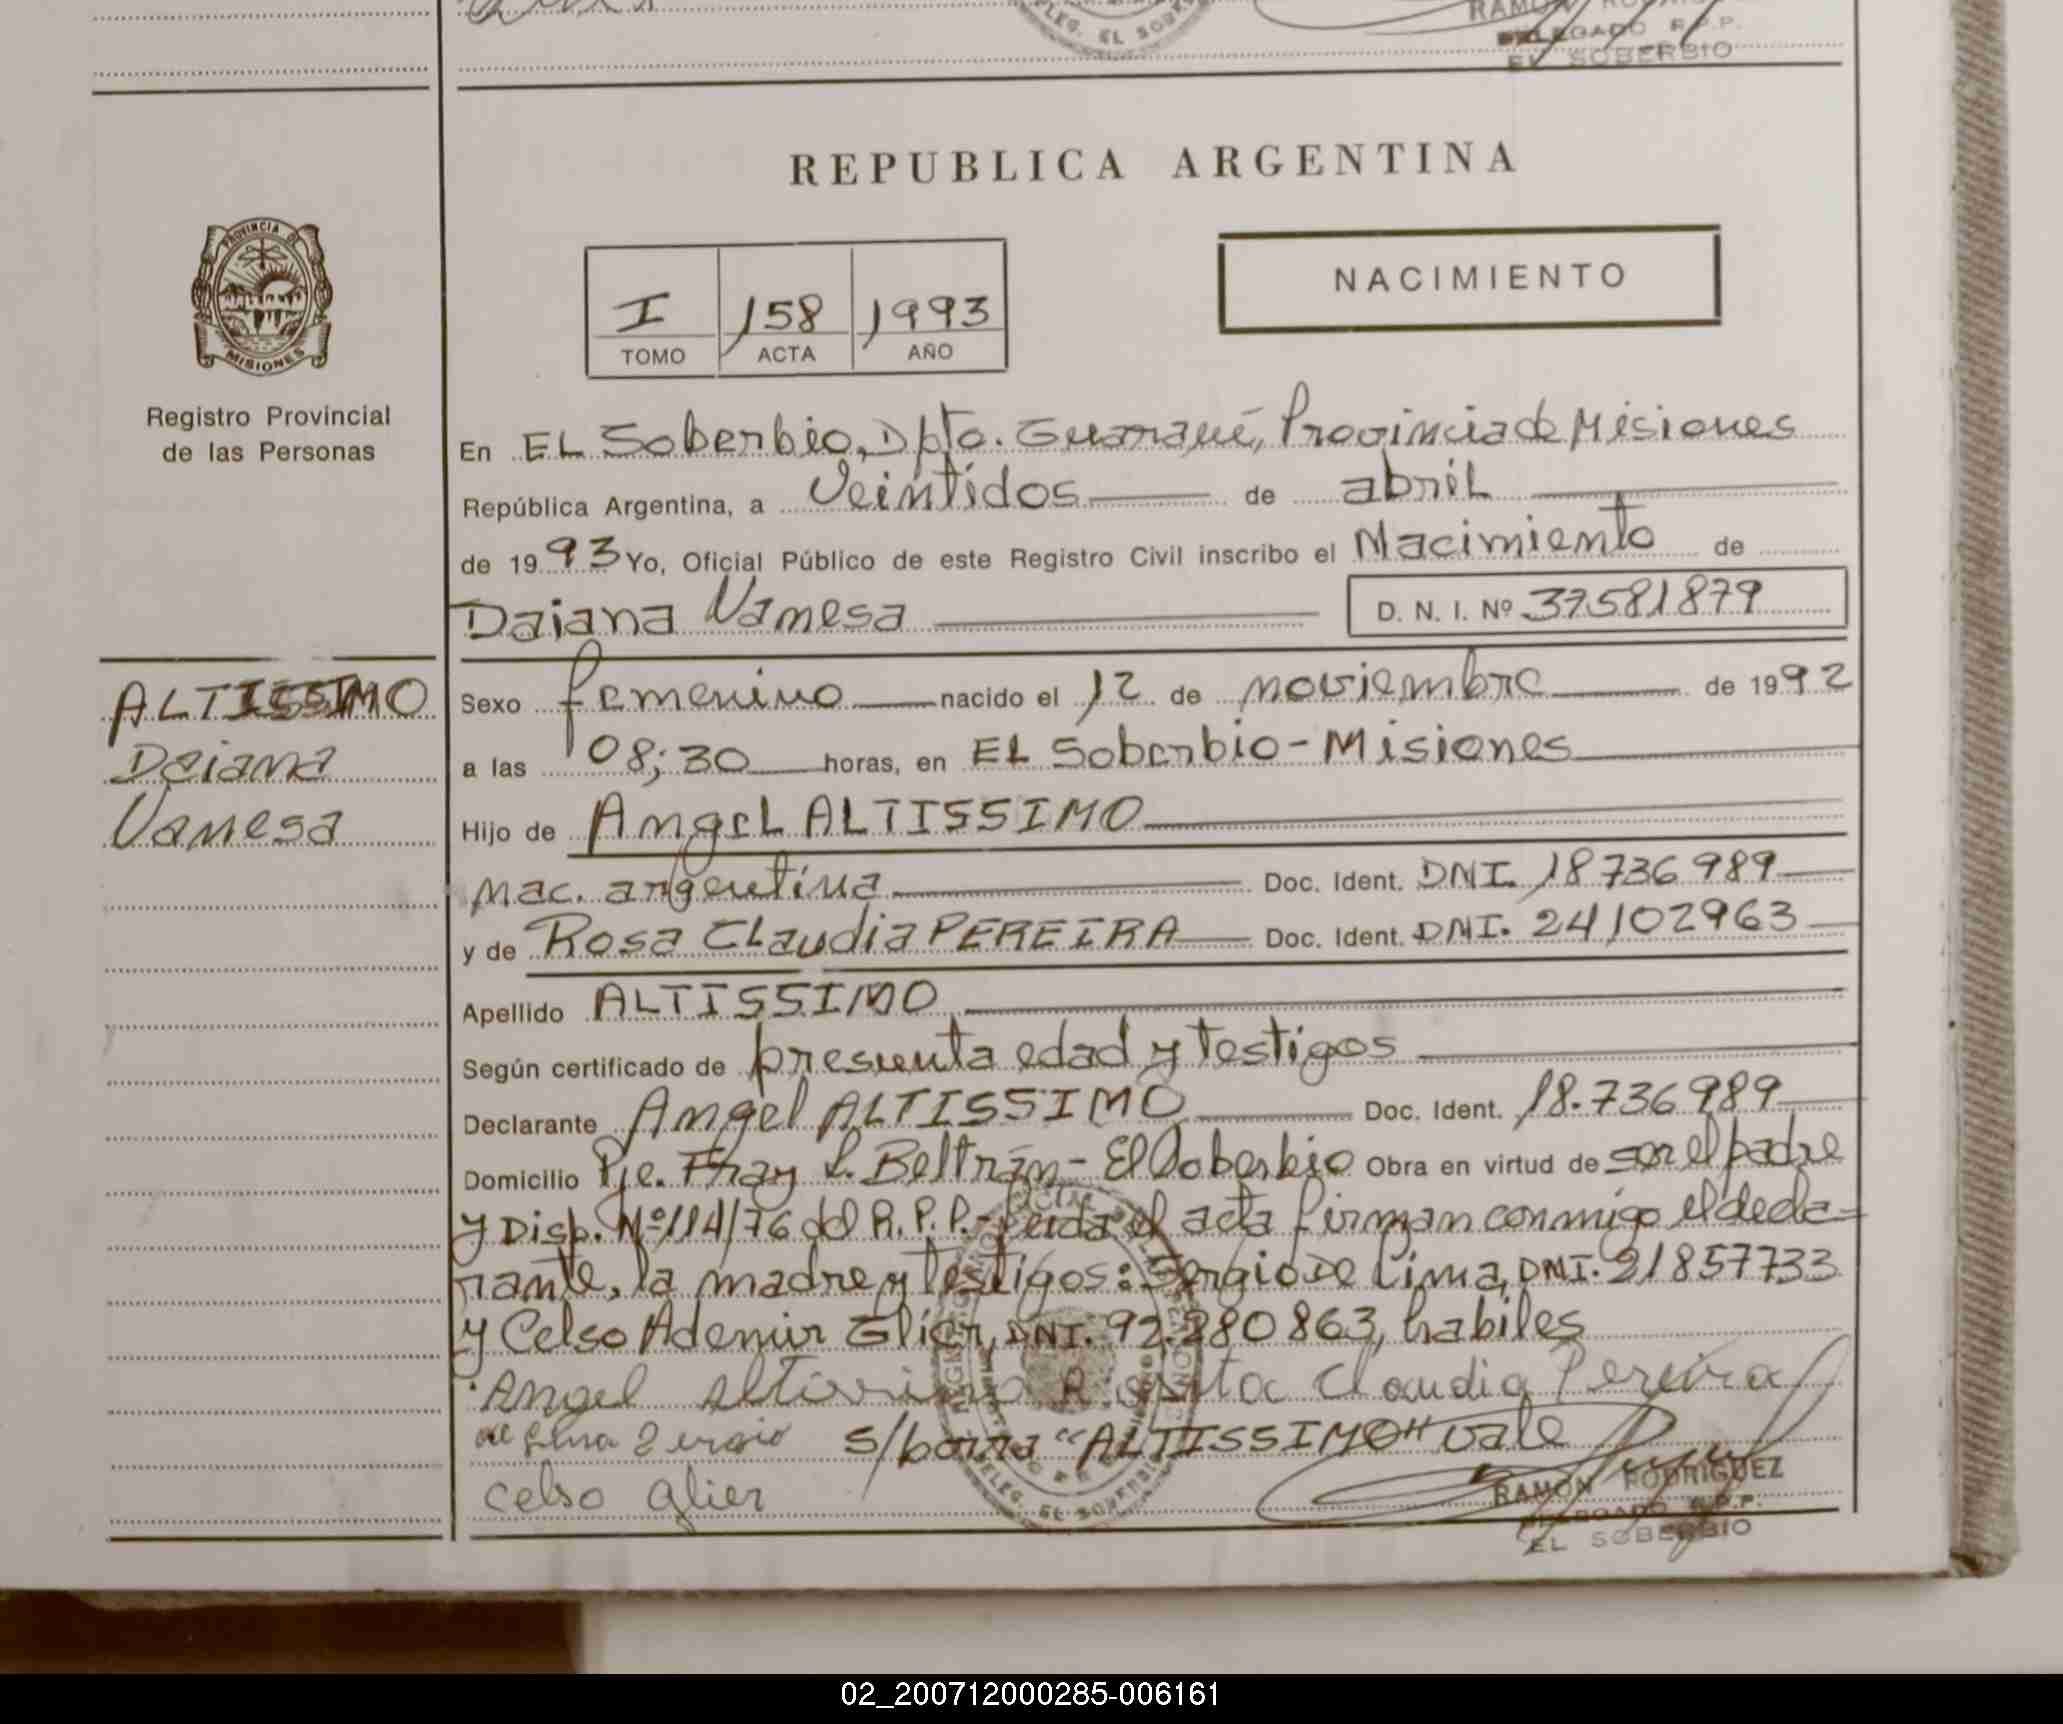 DELEG. EL SOBERBIO
DELEGADO R.P.P.
EL SOBERBIO
REPUBLICA ARGENTINA
PROVINCIA DE
MISIONES
Registro Provincial
de las Personas
I 158 1993
TOMO ACTA AÑO
NACIMIENTO
En EL Soberbio, Dpto. Guaraní, Provincia de Misiones
República Argentina, a Veintidos de abril
de 1993 Yo, Oficial Público de este Registro Civil inscribo el Nacimiento de
Daiana Vanesa D. N. I. Nº 37581879
ALTISSIMO
Daiana
Vanesa
Sexo femenino nacido el 12 de noviembre de 1992
a las 08;30 horas, en EL Soberbio - Misiones
Hijo de Angel ALTISSIMO
nac. argentina Doc. Ident. DNI. 18736989
y de Rosa Claudia PEREIRA Doc. Ident. DNI. 24102963
Apellido ALTISSIMO
Según certificado de presunta edad y testigos
Declarante Angel ALTISSIMO Doc. Ident. 18.736989
Domicilio Pje. Fray L. Beltrán - El Soberbio Obra en virtud de ser el padre
y Disp. Nº 114/76 del R.P.P.- Leida el acta firman conmigo el decla=
rante, la madre y testigos: Sergio De Lima, DNI. 21857733
y Celso Ademir Glier, DNI. 92.280863, habiles
Angel Altissimo Claudia Pereira
s/borra "ALTISSIMO" vale
celso glier
RAMON RODRIGUEZ
DELEGADO R.P.P.
EL SOBERBIO
DELEG. EL SOBERBIO
02_200712000285-006161